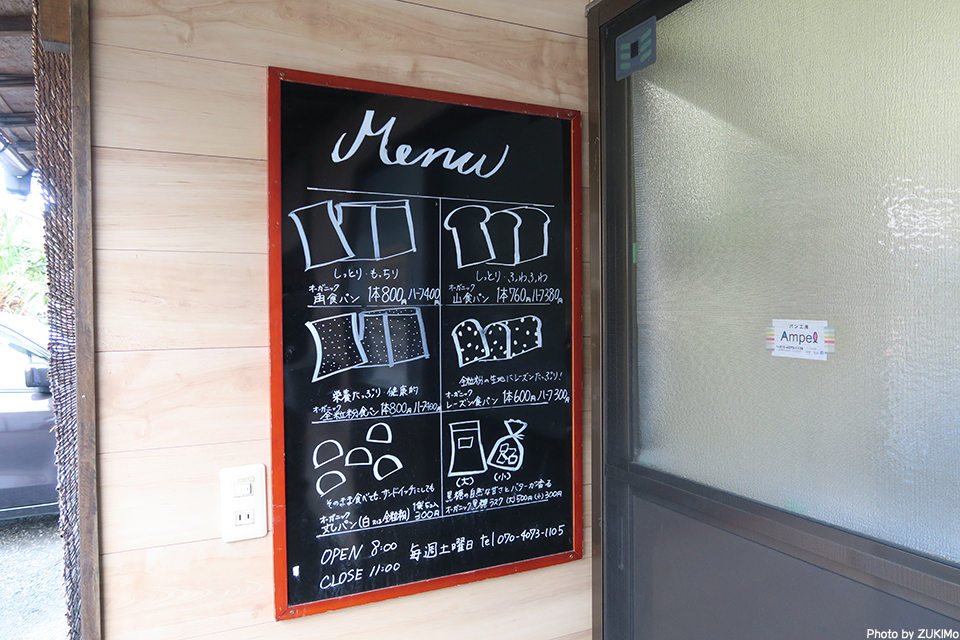 Menu
しっとり・もっちり
オーガニック
角食パン 1本800円 ハーフ400円
しっとり・ふわふわ
オーガニック
山食パン 1本760円 ハーフ380円
栄養たっぷり 健康的
オーガニック
全粒粉食パン 1本800円 ハーフ400円
全粒粉の生地にレーズンたっぷり!
オーガニック
レーズン食パン 1本600円 ハーフ300円
そのまま食べても、サンドイッチにしても
オーガニック
丸パン(白または全粒粉) 1袋5コ入 300円
(大) (小)
黒糖の自然な甘さとバターが香る
オーガニック黒糖ラスク (大)500円(小)300円
OPEN 8:00 毎週土曜日 tel 070-4073-1105
CLOSE 11:00
パン工房
Ampel
Photo by ZUKIMo